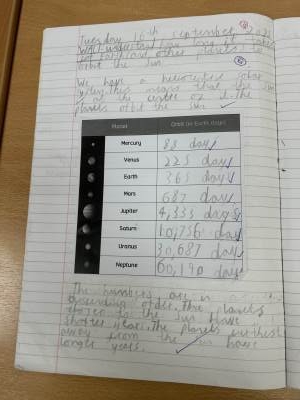 Tuesday 16th September
WALT understand how long it takes
for Earth and other planets to
orbit the sun
We have a heliocentric solar
system, this means that the sun
is in the centre and
planets orbit the sun
Planet Orbit (in Earth days)
Mercury 88 days
Venus 225 days
Earth 365 days
Mars 687 days
Jupiter 4,333 days
Saturn 10,756 days
Uranus 30,687 days
Neptune 60,190 days
The numbers are in
ascending order, the planets
closer to the sun have
shorter years, the planets furthest
away from the sun have
longer years.